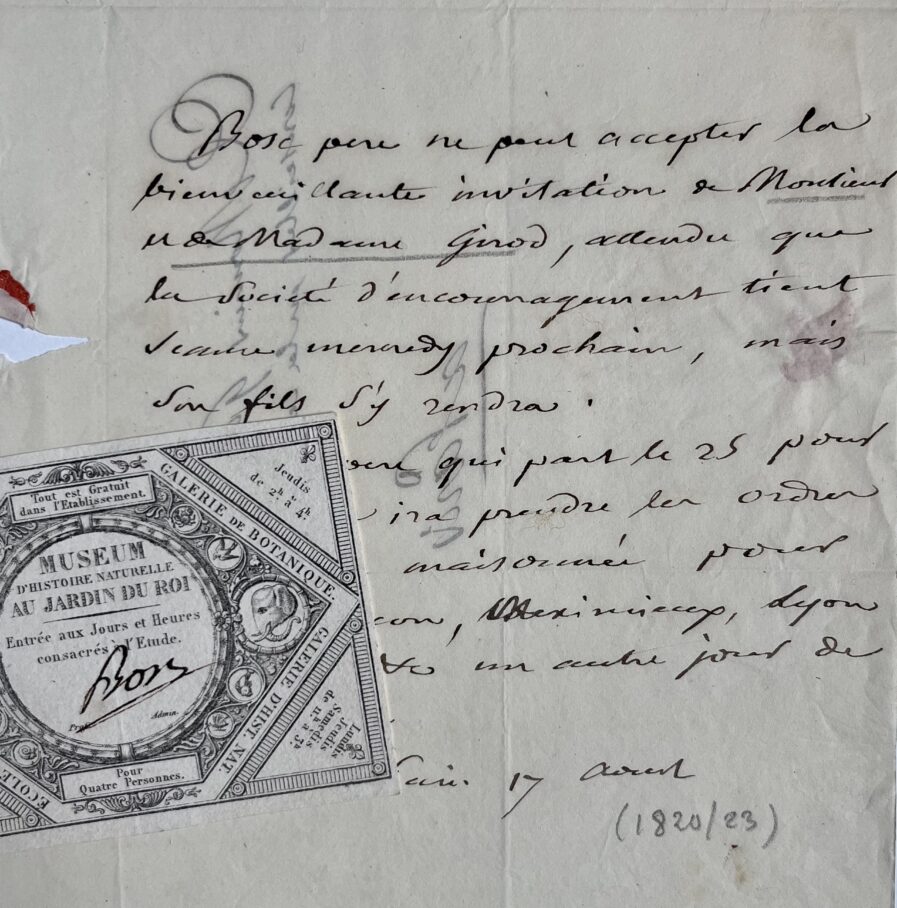 Bosc pere ne peut accepter la
bienveillante invitation de Monsieur
et de Madame Girod, attendu que
la Société d'encouragement tient
seance mercredy prochain, mais
son fils s'y rendra.
qui part le 25 pour
ira prendre les ordres
maisonnée pour
Meximieux, Lyon
un autre jour de
17 Aoust
(1820/23)
Tout est Gratuit
dans l'Etablissement.
MUSEUM
D'HISTOIRE NATURELLE
AU JARDIN DU ROI
Entrée aux Jours et Heures
consacrés à l'Etude.
Bosc
Admin.
Pour
Quatre Personnes.
GALERIE DE BOTANIQUE.
Jeudis
de 2h à 4h.
GALERIE D'HIST. NAT.
Lundis
Jeudis
Samedis
de 11h à 3h.
ECOLE